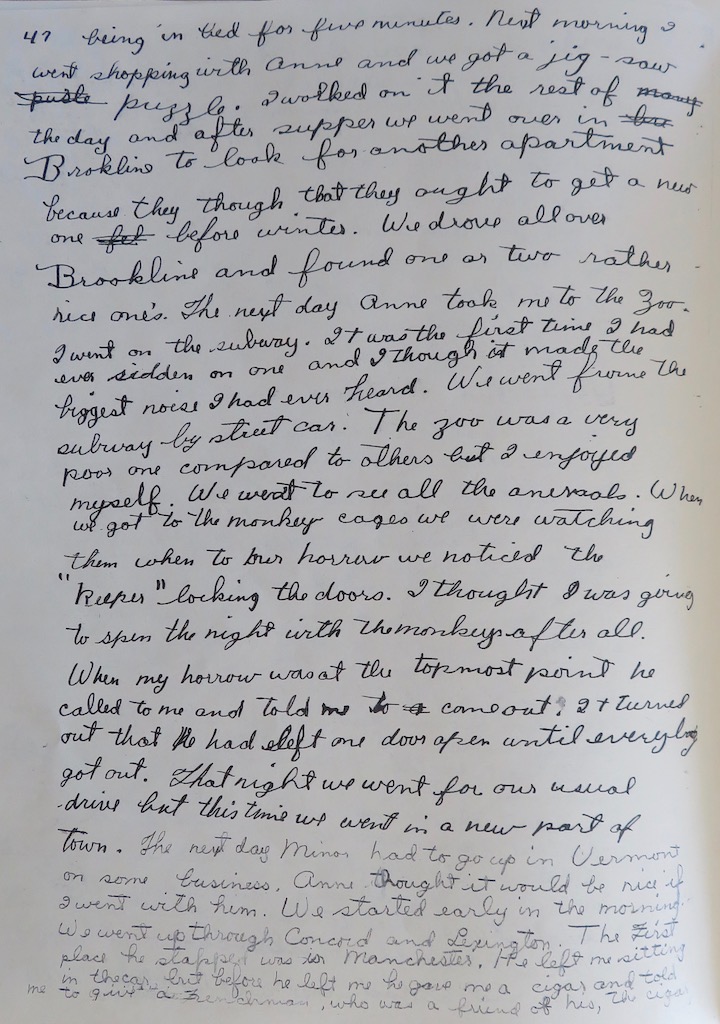 47 being in bed for five minutes. Next morning I
went shopping with Anne and we got a jig-saw
puzzle. I worked on it the rest of
the day and after supper we went over in
Brokline to look for another apartment
because they though that they ought to get a new
one before winter. We drove all over
Brookline and found one or two rather
nice one's. The next day Anne took me to the Zoo.
I went on the subway. It was the first time I had
ever sidden on one and I though it made the
biggest noise I had ever heard. We went frome the
subway by street car. The zoo was a very
poor one compared to others but I enjoyed
myself. We went to see all the animals. When
we got to the monkey cages we were watching
them when to our horrow we noticed the
"Keeper" locking the doors. I thought I was going
to spen the night with the monkeys after all.
When my horrow was at the topmost point he
called to me and told me to come out. It turned
out that he had left one door open until everybody
got out. That night we went for our usual
drive but this time we went in a new part of
town. The next day Minor had to go up in Vermont
on some business. Anne thought it would be nice if
I went with him. We started early in the morning.
We went up through Concord and Lexington. The First
place he stopped was in Manchester. He left me sitting
in the car but before he left me he gave me a cigar and told
me to give a Frenchman, who was a friend of his, the cigar